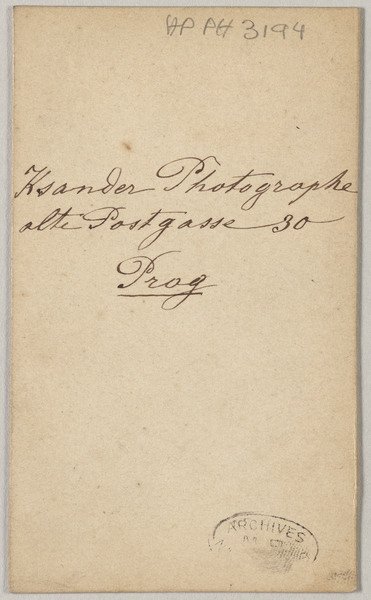 AP PH 3194
Ksander Photographe
alte Postgasse 30
Prag
ARCHIVES